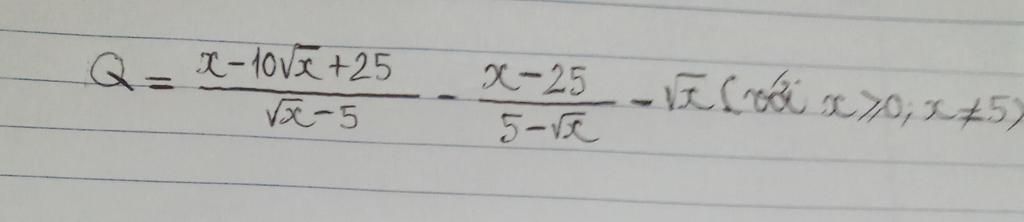 Q = \frac{x-10\sqrt{x}+25}{\sqrt{x}-5} - \frac{x-25}{5-\sqrt{x}} - \sqrt{x} (với x ⩾ 0; x ≠ 5)